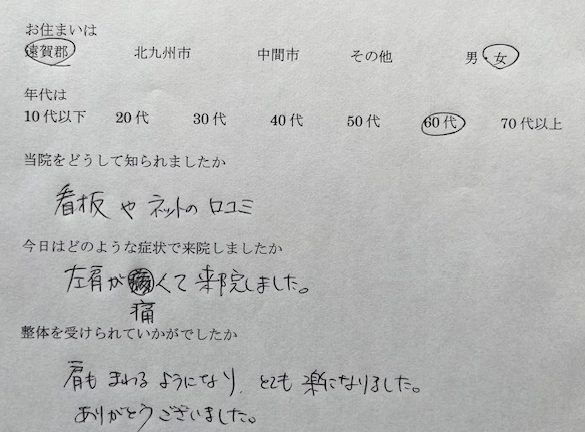 お住まいは
遠賀郡 北九州市 中間市 その他 男・女
年代は
10代以下 20代 30代 40代 50代 60代 70代以上
当院をどうして知られましたか
看板やネットの口コミ
今日はどのような症状で来院しましたか
左肩がくて来院しました。
痛
整体を受けられていかがでしたか
肩もまわるようになり、とても楽になりました。
ありがとうございました。